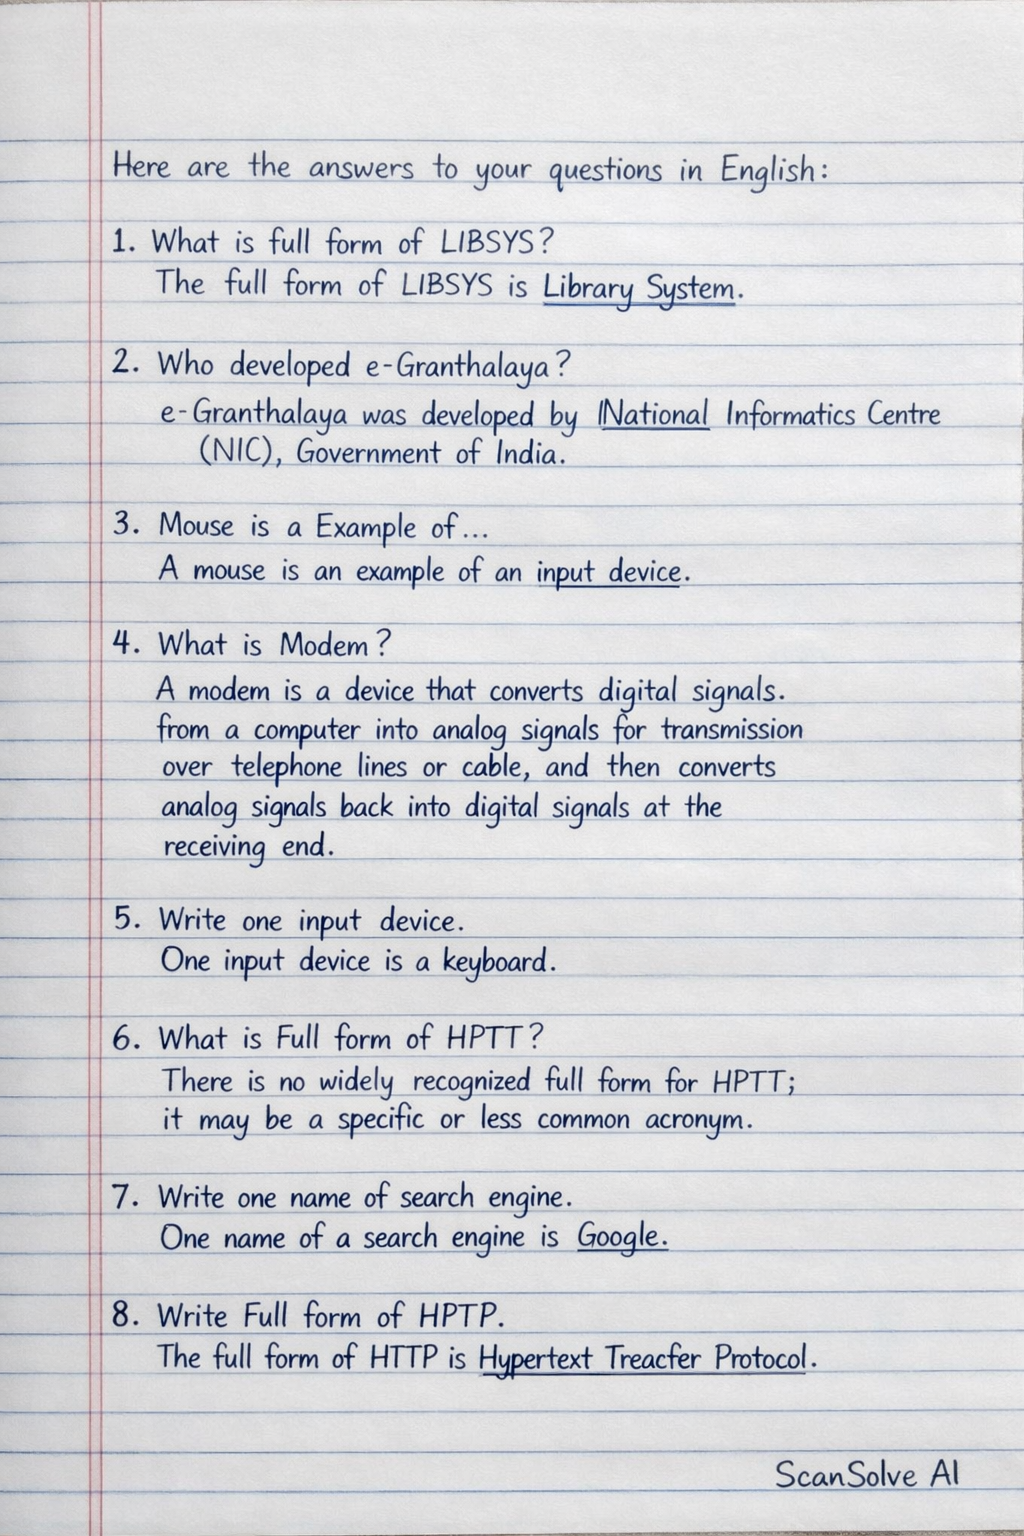 Here are the answers to your questions in English:
1. What is full form of LIBSYS?
The full form of LIBSYS is Library System.
2. Who developed e-Granthalaya?
e-Granthalaya was developed by lNational Informatics Centre
(NIC), Government of India.
3. Mouse is a Example of...
A mouse is an example of an input device.
4. What is Modem?
A modem is a device that converts digital signals.
from a computer into analog signals for transmission
over telephone lines or cable, and then converts
analog signals back into digital signals at the
receiving end.
5. Write one input device.
One input device is a keyboard.
6. What is Full form of HPTT?
There is no widely recognized full form for HPTT;
it may be a specific or less common acronym.
7. Write one name of search engine.
One name of a search engine is Google.
8. Write Full form of HPTP.
The full form of HTTP is Hypertext Treacfer Protocol.
ScanSolve AI